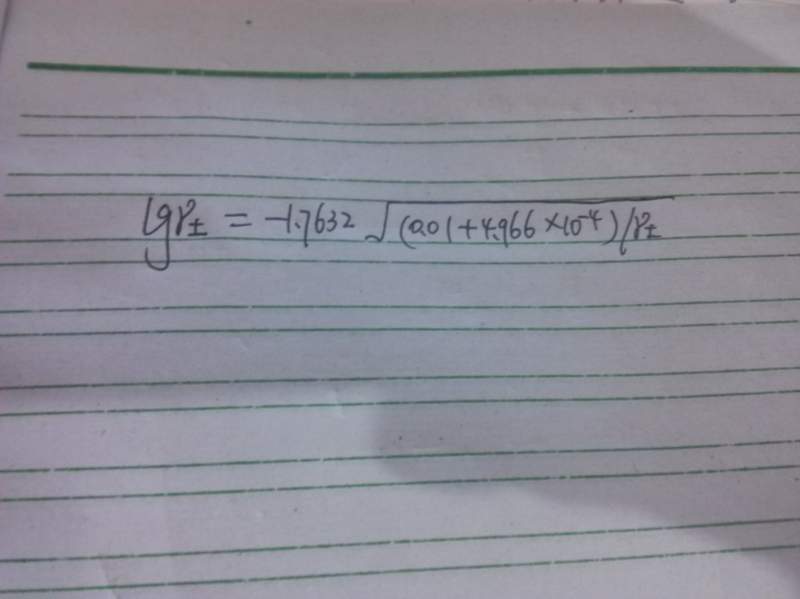 lgγ± = -1.7632 √(0.01+4.966×10⁻⁴)/γ±